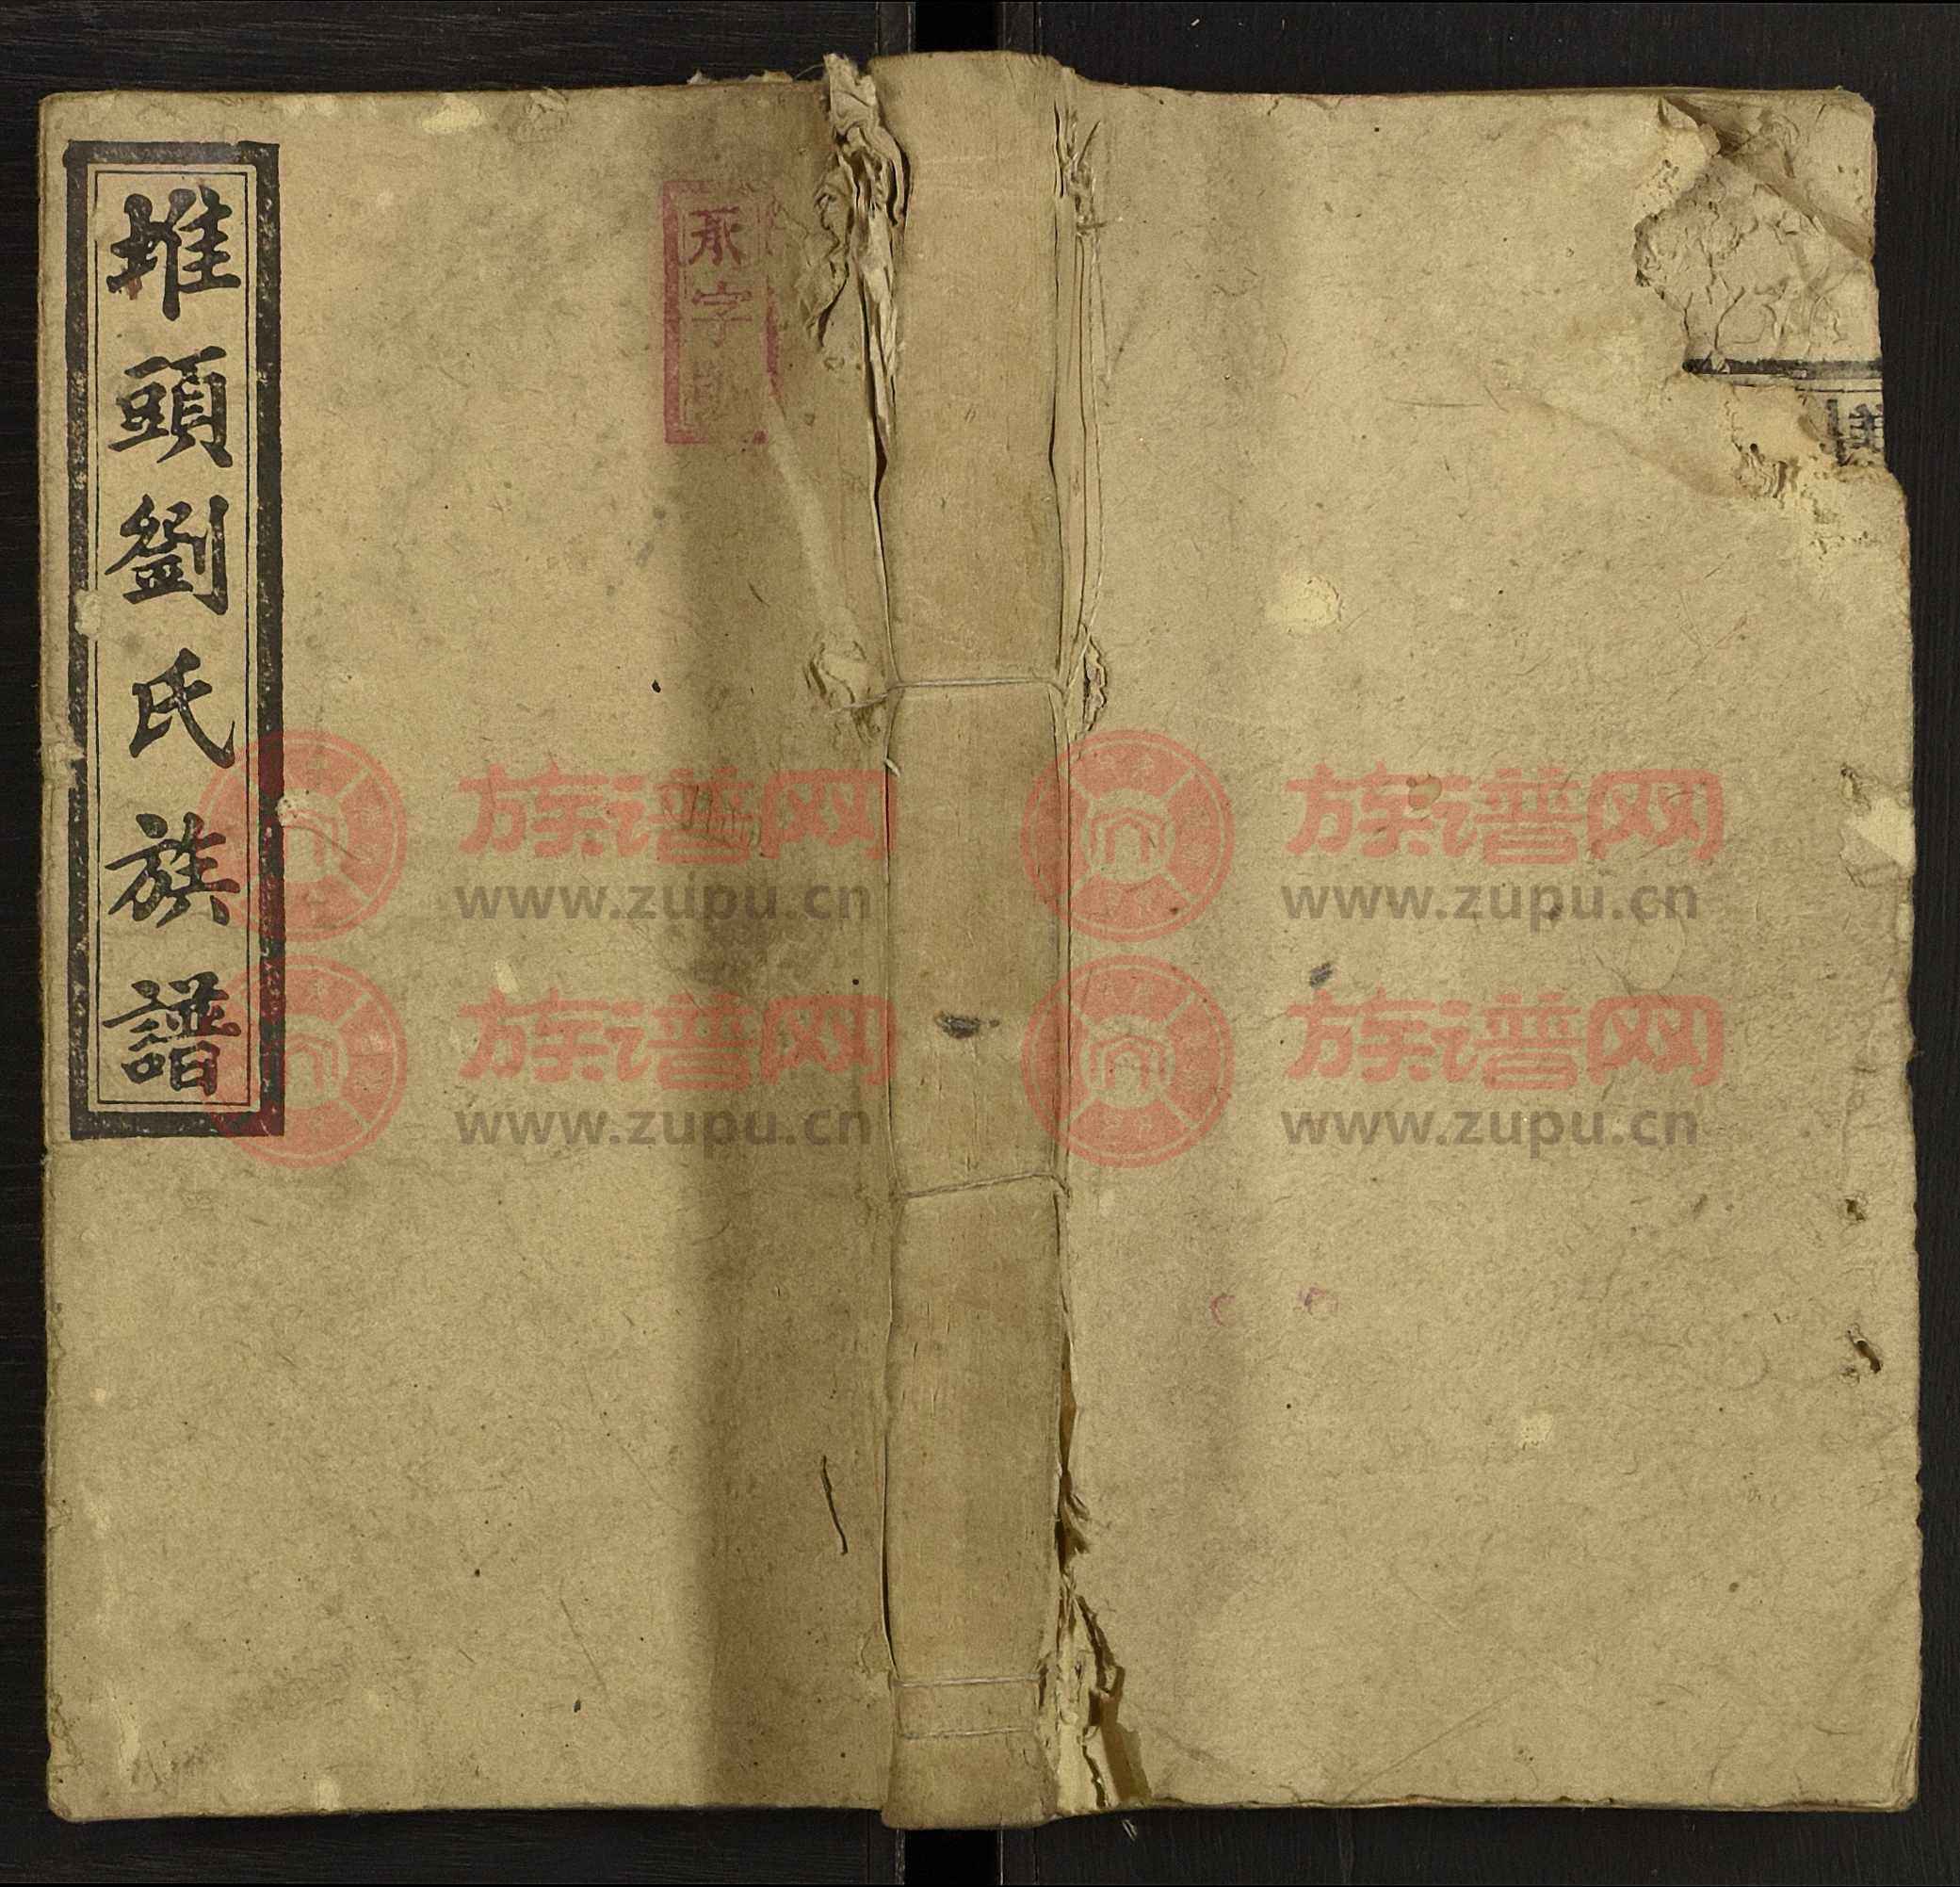 堆頭劉氏族譜
字
族谱网
www.zupu.cn
族谱网
www.zupu.cn
族谱网
www.zupu.cn
族谱网
www.zupu.cn